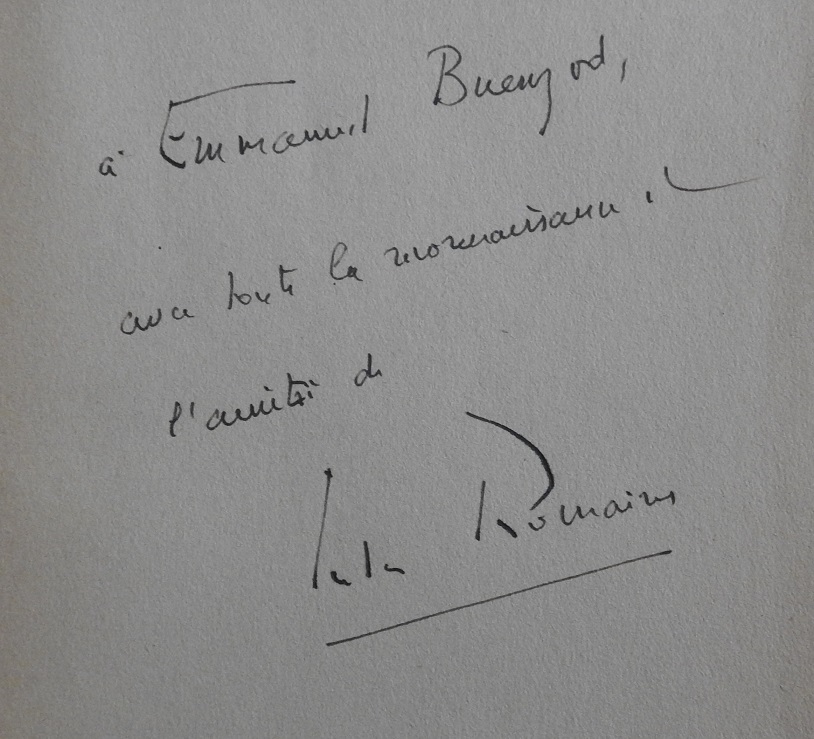 à Emmanuel Buenzod,
avec toute la reconnaissance et
l'amitié de
Jules Romains